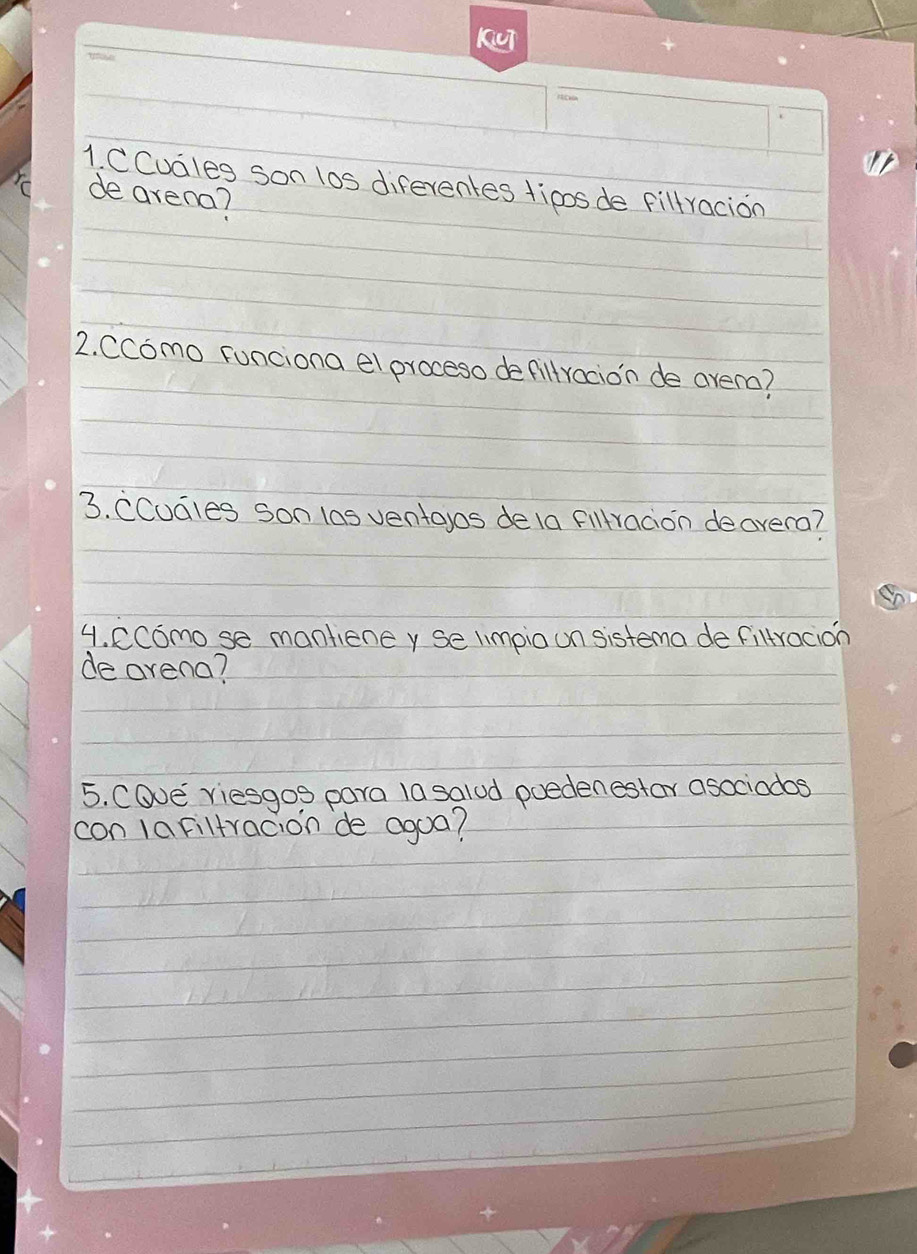 KIUT
1. ¿Cuáles son los diferentes tipos de filtración
de arena?
2. ¿Cómo funciona el proceso de filtración de arena?
3. ¿Cuáles son las ventajas de la filtración de arena?
4. ¿Cómo se mantiene y se limpia un sistema de filtración
de arena?
5. ¿Qué riesgos para la salud pueden estar asociados
con la filtración de agua?